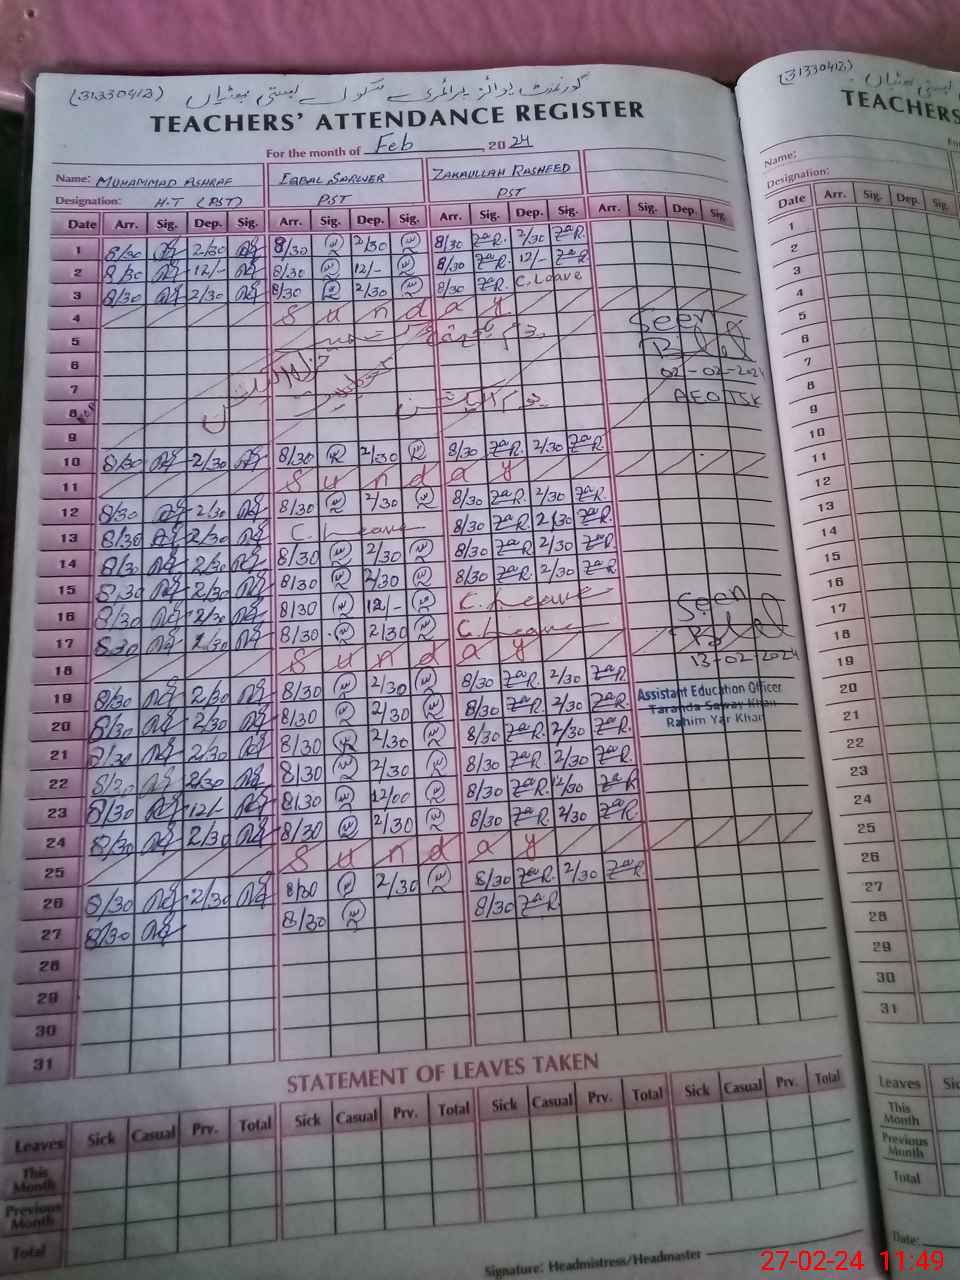 (31330413) گورنمنٹ بوائز پرائمری سکول بستی بھٹیاں
TEACHERS' ATTENDANCE REGISTER
For the month of Feb, 2024
Name: MUHAMMAD ASHRAF IQBAL SARWER ZAKAULLAH RASHEED
Designation: H.T (PST) PST PST
Date Arr. Sig. Dep. Sig. Arr. Sig. Dep. Sig. Arr. Sig. Dep. Sig. Arr. Sig. Dep. Sig.
1 8/30 2/30 8/30 2/30 8/30 ZaR. 2/30 ZaR.
2 8/30 12/- 8/30 12/- 8/30 ZaR. 12/- ZaR.
3 8/30 2/30 8/30 2/30 8/30 ZaR. C. Leave
4 Sunday
5
Seen
6
7
02-02-2024
8
AEO TSK
9
10 8/30 2/30 8/30 2/30 8/30 ZaR. 2/30 ZaR.
11 Sunday
12 8/30 2/30 8/30 2/30 8/30 ZaR. 2/30 ZaR.
13 8/30 2/30 C. Leave 8/30 ZaR. 2/30 ZaR.
14 8/30 2/30 8/30 2/30 8/30 ZaR. 2/30 ZaR.
15 8/30 2/30 8/30 2/30 8/30 ZaR. 2/30 ZaR.
16 8/30 2/30 8/30 12/- C. Leave
Seen
17 8/30 2/30 8/30 2/30 C. Leave
18 Sunday
13-02-2024
19 8/30 2/30 8/30 2/30 8/30 ZaR. 2/30 ZaR.
Assistant Education Officer
Taranda Saway Khan
Rahim Yar Khan
20 8/30 2/30 8/30 2/30 8/30 ZaR. 2/30 ZaR.
21 8/30 2/30 8/30 2/30 8/30 ZaR. 2/30 ZaR.
22 8/30 2/30 8/30 2/30 8/30 ZaR. 2/30 ZaR.
23 8/30 12/- 8/30 12/00 8/30 ZaR. 12/30 ZaR.
24 8/30 2/30 8/30 2/30 8/30 ZaR. 2/30 ZaR.
25 Sunday
26 8/30 2/30 8/30 2/30 8/30 ZaR. 2/30 ZaR.
27 8/30 8/30 8/30 ZaR.
28
29
30
31
STATEMENT OF LEAVES TAKEN
Leaves Sick Casual Prv. Total Sick Casual Prv. Total Sick Casual Prv. Total Sick Casual Prv. Total
This Month
Previous Month
Total
Signature: Headmistress/Headmaster
(31330413)
TEACHERS
Name:
Designation:
Date Arr. Sig. Dep. Sig.
1
2
3
4
5
6
7
8
9
10
11
12
13
14
15
16
17
18
19
20
21
22
23
24
25
26
27
28
29
30
31
Leaves
This Month
Previous Month
Total
Date:
27-02-24 11:49